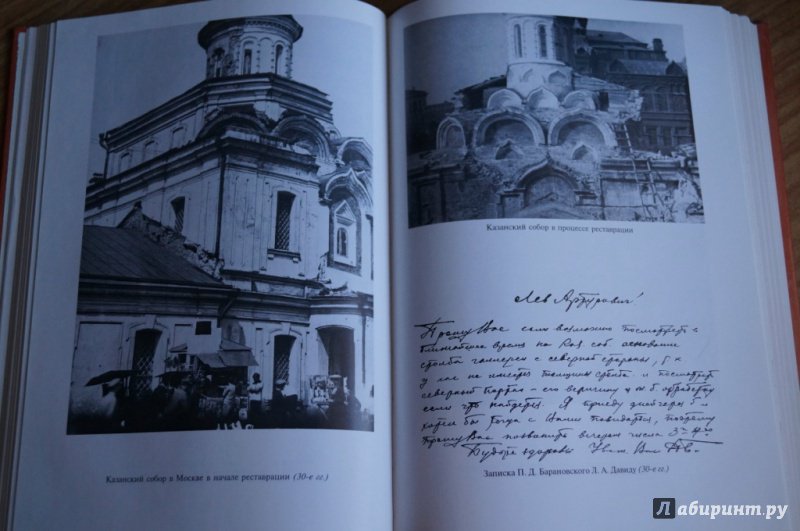 Казанский собор в Москве в начале реставрации (30-е гг.)
Казанский собор в процессе реставрации
Лев Артурович!
Прошу Вас если возможно посмотреть в
ближайшее время на Каз. соб. основание
столба галлереи с северной стороны,
у нас не имеется толщины столба и посмотреть
северный портал – его величину и м. б обработку
если что найдете. Я приеду
хотел бы тогда с Вами повидаться, поэтому
Прошу Вас позвонить вечером числа 3го 4го
Будьте здоровы
Записка П. Д. Барановского Л. А. Давиду (30-е гг.)
Лабиринт.ру